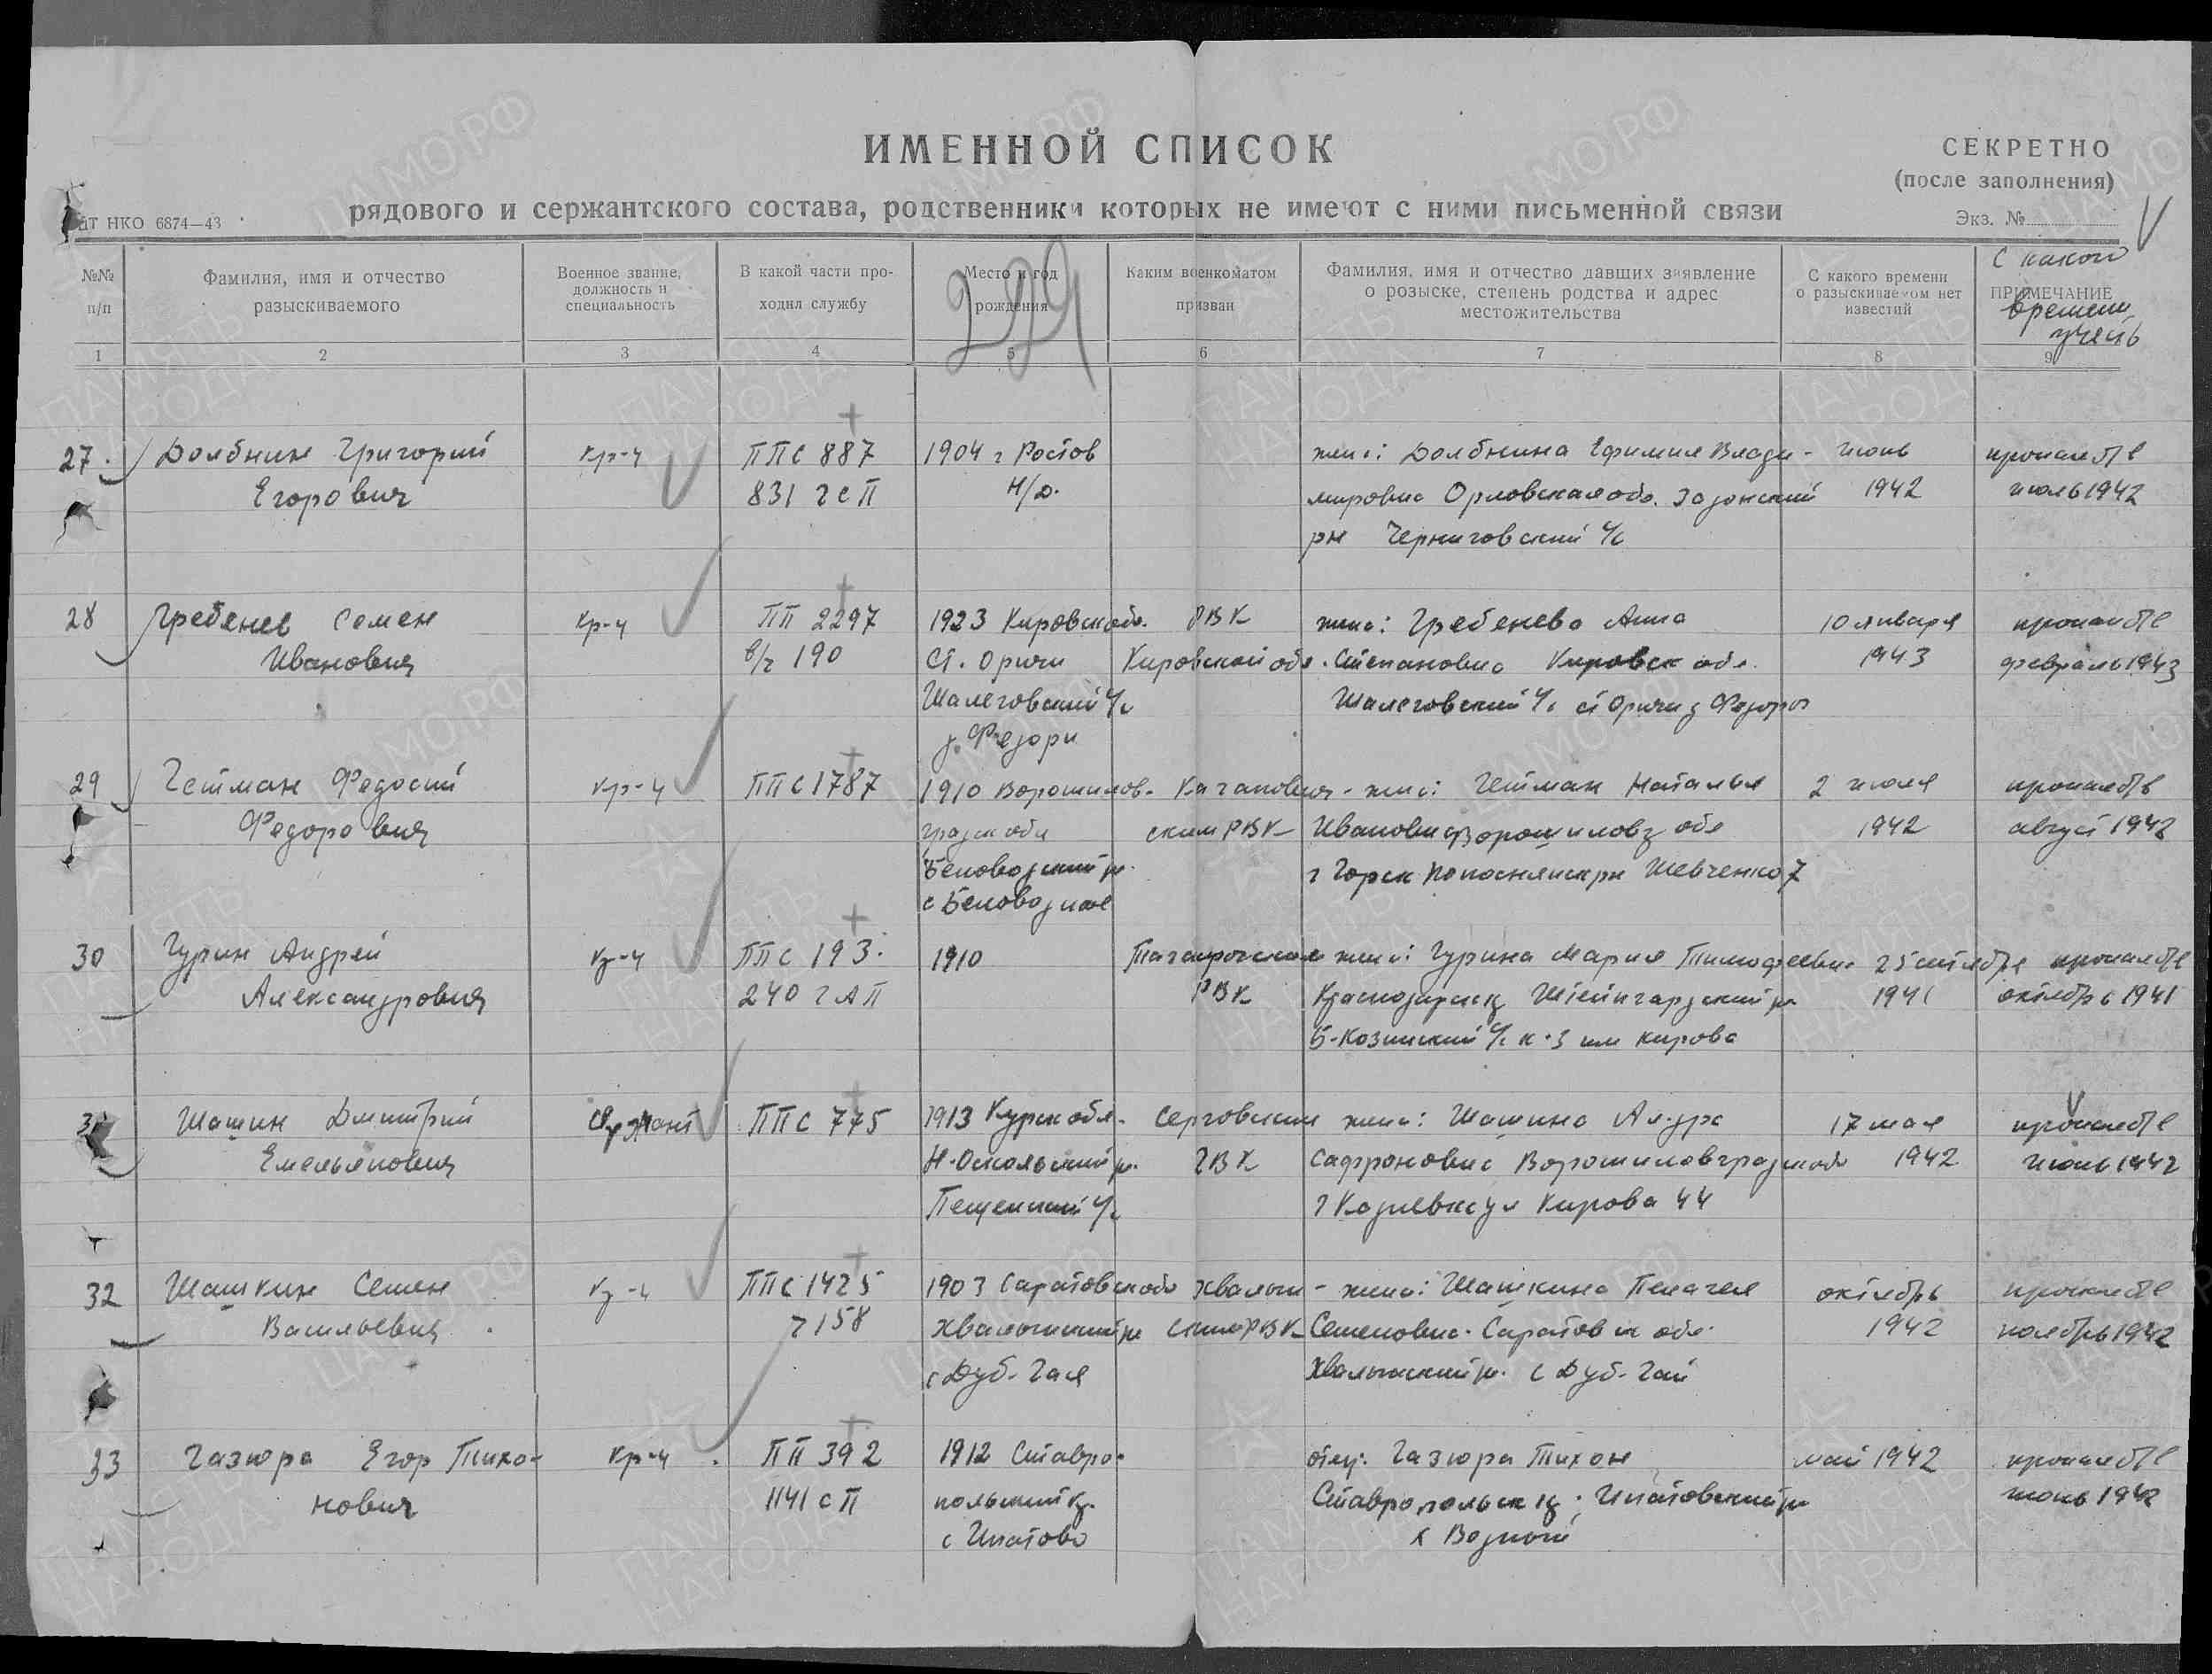 ИМЕННОЙ СПИСОК
СЕКРЕТНО
(после заполнения)
рядового и сержантского состава, родственники которых не имеют с ними письменной связи
НКО 6874—43
Экз. №
№№ п/п
Фамилия, имя и отчество разыскиваемого
Военное звание, должность и специальность
В какой части проходил службу
Место и год рождения
Каким военкоматом призван
Фамилия, имя и отчество давших заявление о розыске, степень родства и адрес местожительства
С какого времени о разыскиваемом нет известий
ПРИМЕЧАНИЕ
С какого
времени
учесть
229
1 2 3 4 5 6 7 8 9
27. Долбнин Григорий кр-ц ППС 887 1904 г Ростов жена: Долбнина Ефимия Влади- июнь пропал б/в
Егорович 831 гсп Н/Д. мировна Орловская обл. Задонский 1942 июль 1942
рн Черниговский с/с
28 Гребенев Семен кр-ц ПП 2297 1923 Кировск обл. РВК жена: Гребенева Анна 10 января пропал б/в
Иванович в/ч 190 ст. Оричи Кировской обл. Степановна Кировск обл. 1943 февраль 1943
Шалеговский с/с Шалеговский с/с ст Оричи д Федоры
д. Федори
29 Гетман Федосий кр-ц ППС 1787 1910 Ворошилов- Каганович- жена: Гетман Наталья 2 июля пропал б/в
Федорович градск обл ским РВК Ивановна Ворошиловг обл 1942 август 1942
Беловодский р. г Горск Попаснянск рн Шевченко 7
с Беловодское
30 Гурин Андрей кр-ц ППС 193. 1910 Таганрогским жена: Гурина Мария Тимофеевна 25 сентября пропал б/в
Александрович 240 гап РВК Краснодарск кр Штейнгардский р. 1941 октябрь 1941
Б-Козинский с/с к-з им Кирова
31 Шашин Дмитрий Сержант ППС 775 1913 Курск обл. Серговским жена: Шашина Ал-дра 17 мая пропал б/в
Емельянович Н-Оскольский р. ГВК Сафроновна Ворошиловградск обл 1942 июнь 1942
с/с г Кадиевка ул Кирова 44
32 Шашкин Семен кр-ц ППС 1425 1903 Саратовск обл Хвалын- жена: Шашкина Пелагея октябрь пропал б/в
Васильевич 158 Хвалынский р ским РВК Семеновна. Саратовск обл. 1942 ноябрь 1942
с Дуб-Гая Хвалынский р. с Дуб-Гай
33 Газюра Егор Тихо- кр-ц ПП 392 1912 Ставро- отец: Газюра Тихон май 1942 пропал б/в
нович 1141 сп польский кр. Ставропольск кр. Ипатовский р июнь 1942
с Ипатово х Водный
ПАМЯТЬ НАРОДА
ЦАМО.РФ